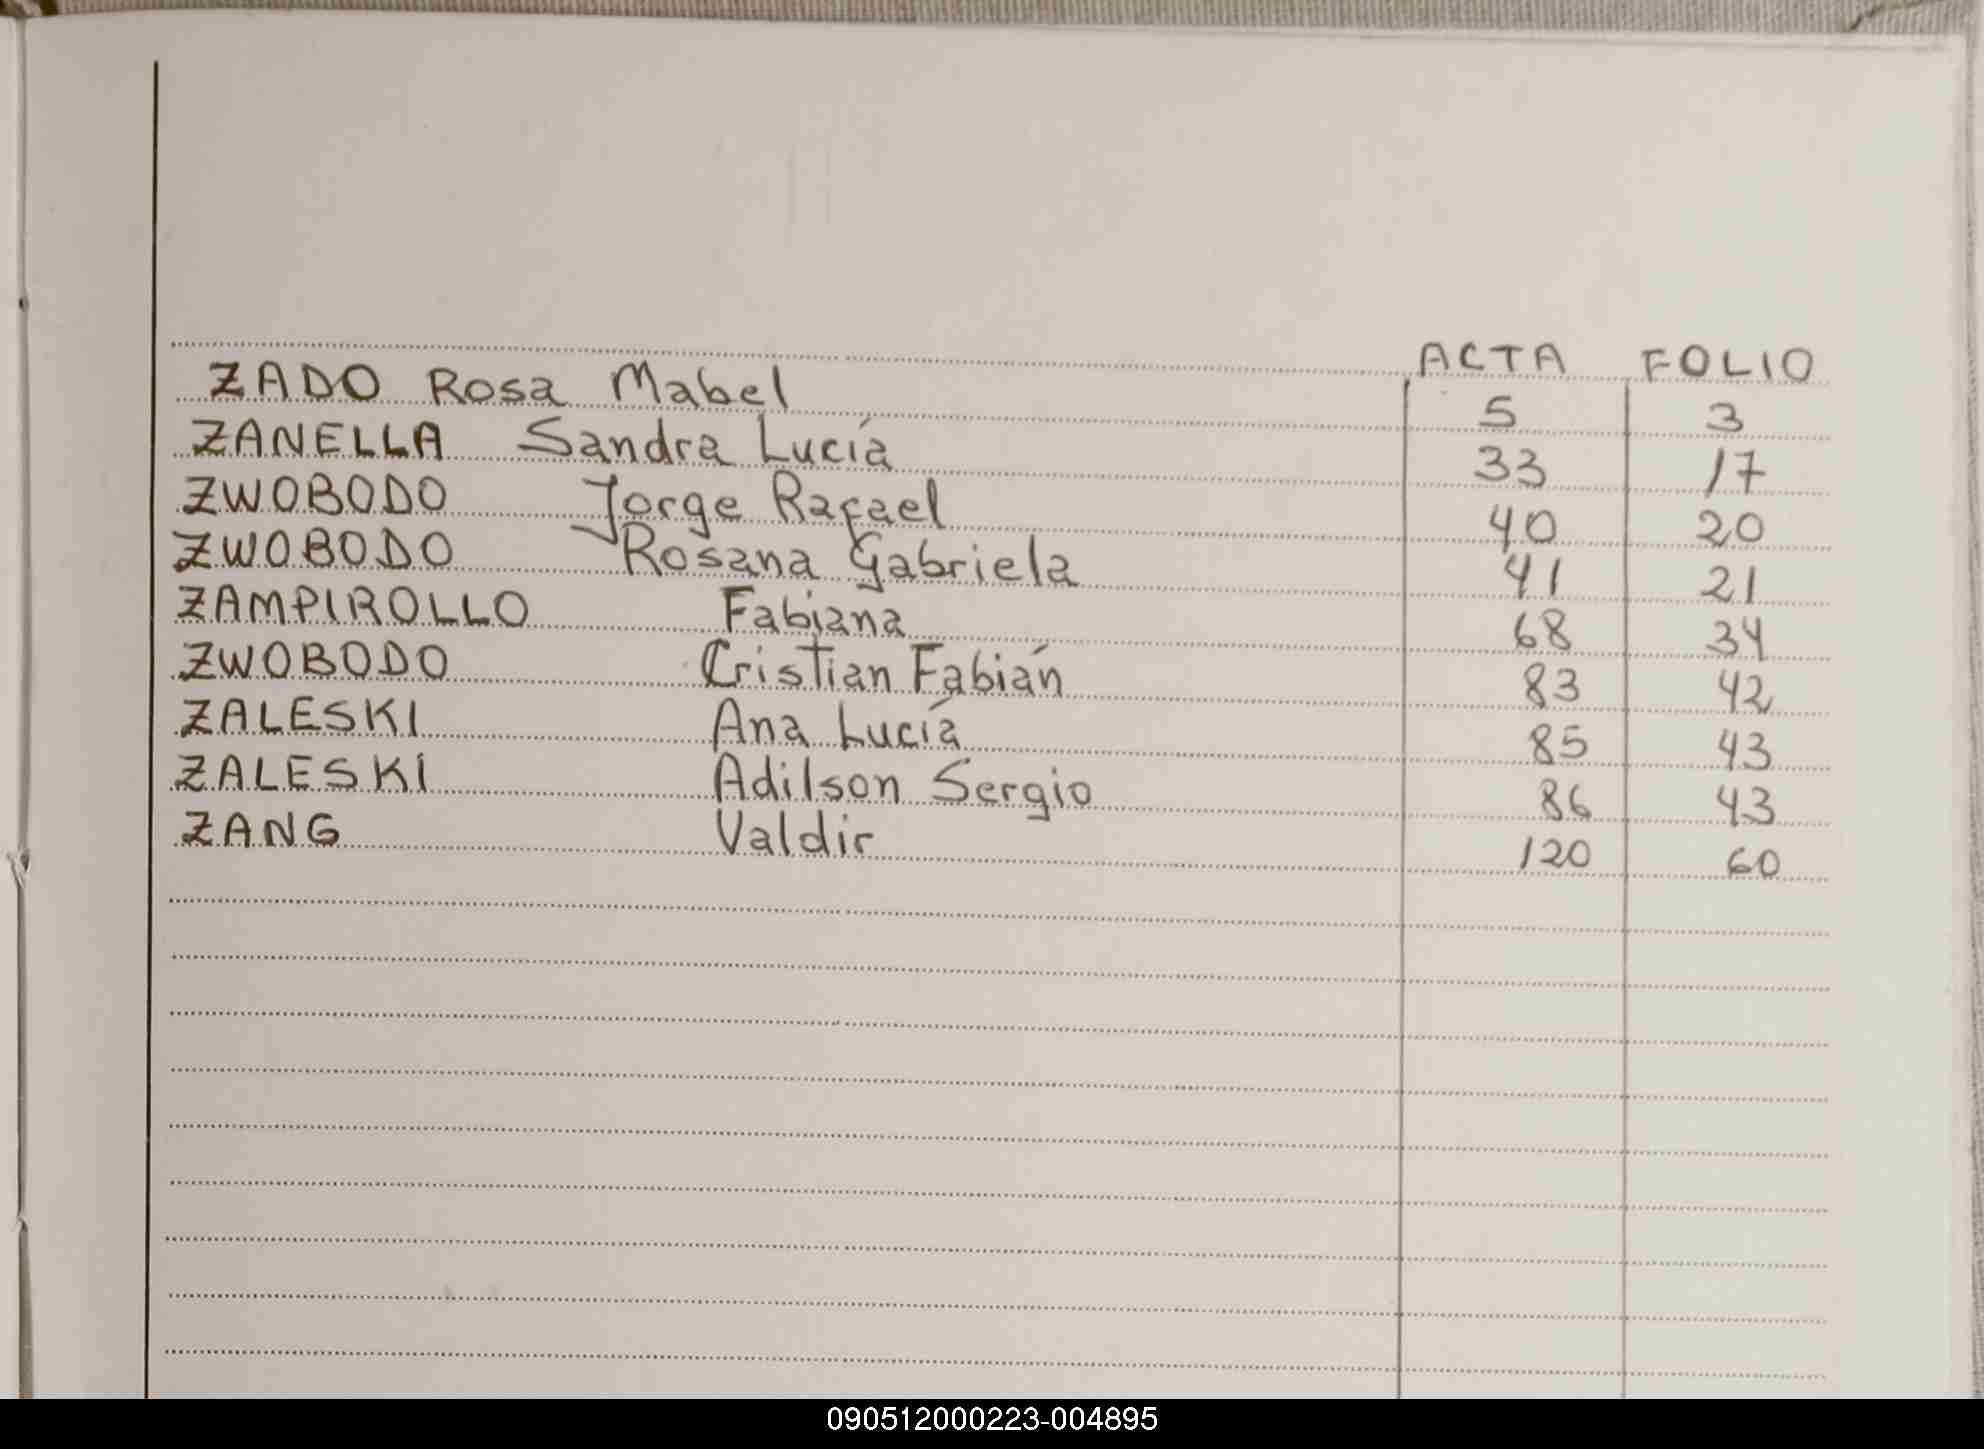 ACTA FOLIO
ZADO Rosa Mabel 5 3
ZANELLA Sandra Lucía 33 17
ZWOBODO Jorge Rafael 40 20
ZWOBODO Rosana Gabriela 41 21
ZAMPIROLLO Fabiana 68 34
ZWOBODO Cristian Fabián 83 42
ZALESKI Ana Lucía 85 43
ZALESKI Adilson Sergio 86 43
ZANG Valdir 120 60
090512000223-004895